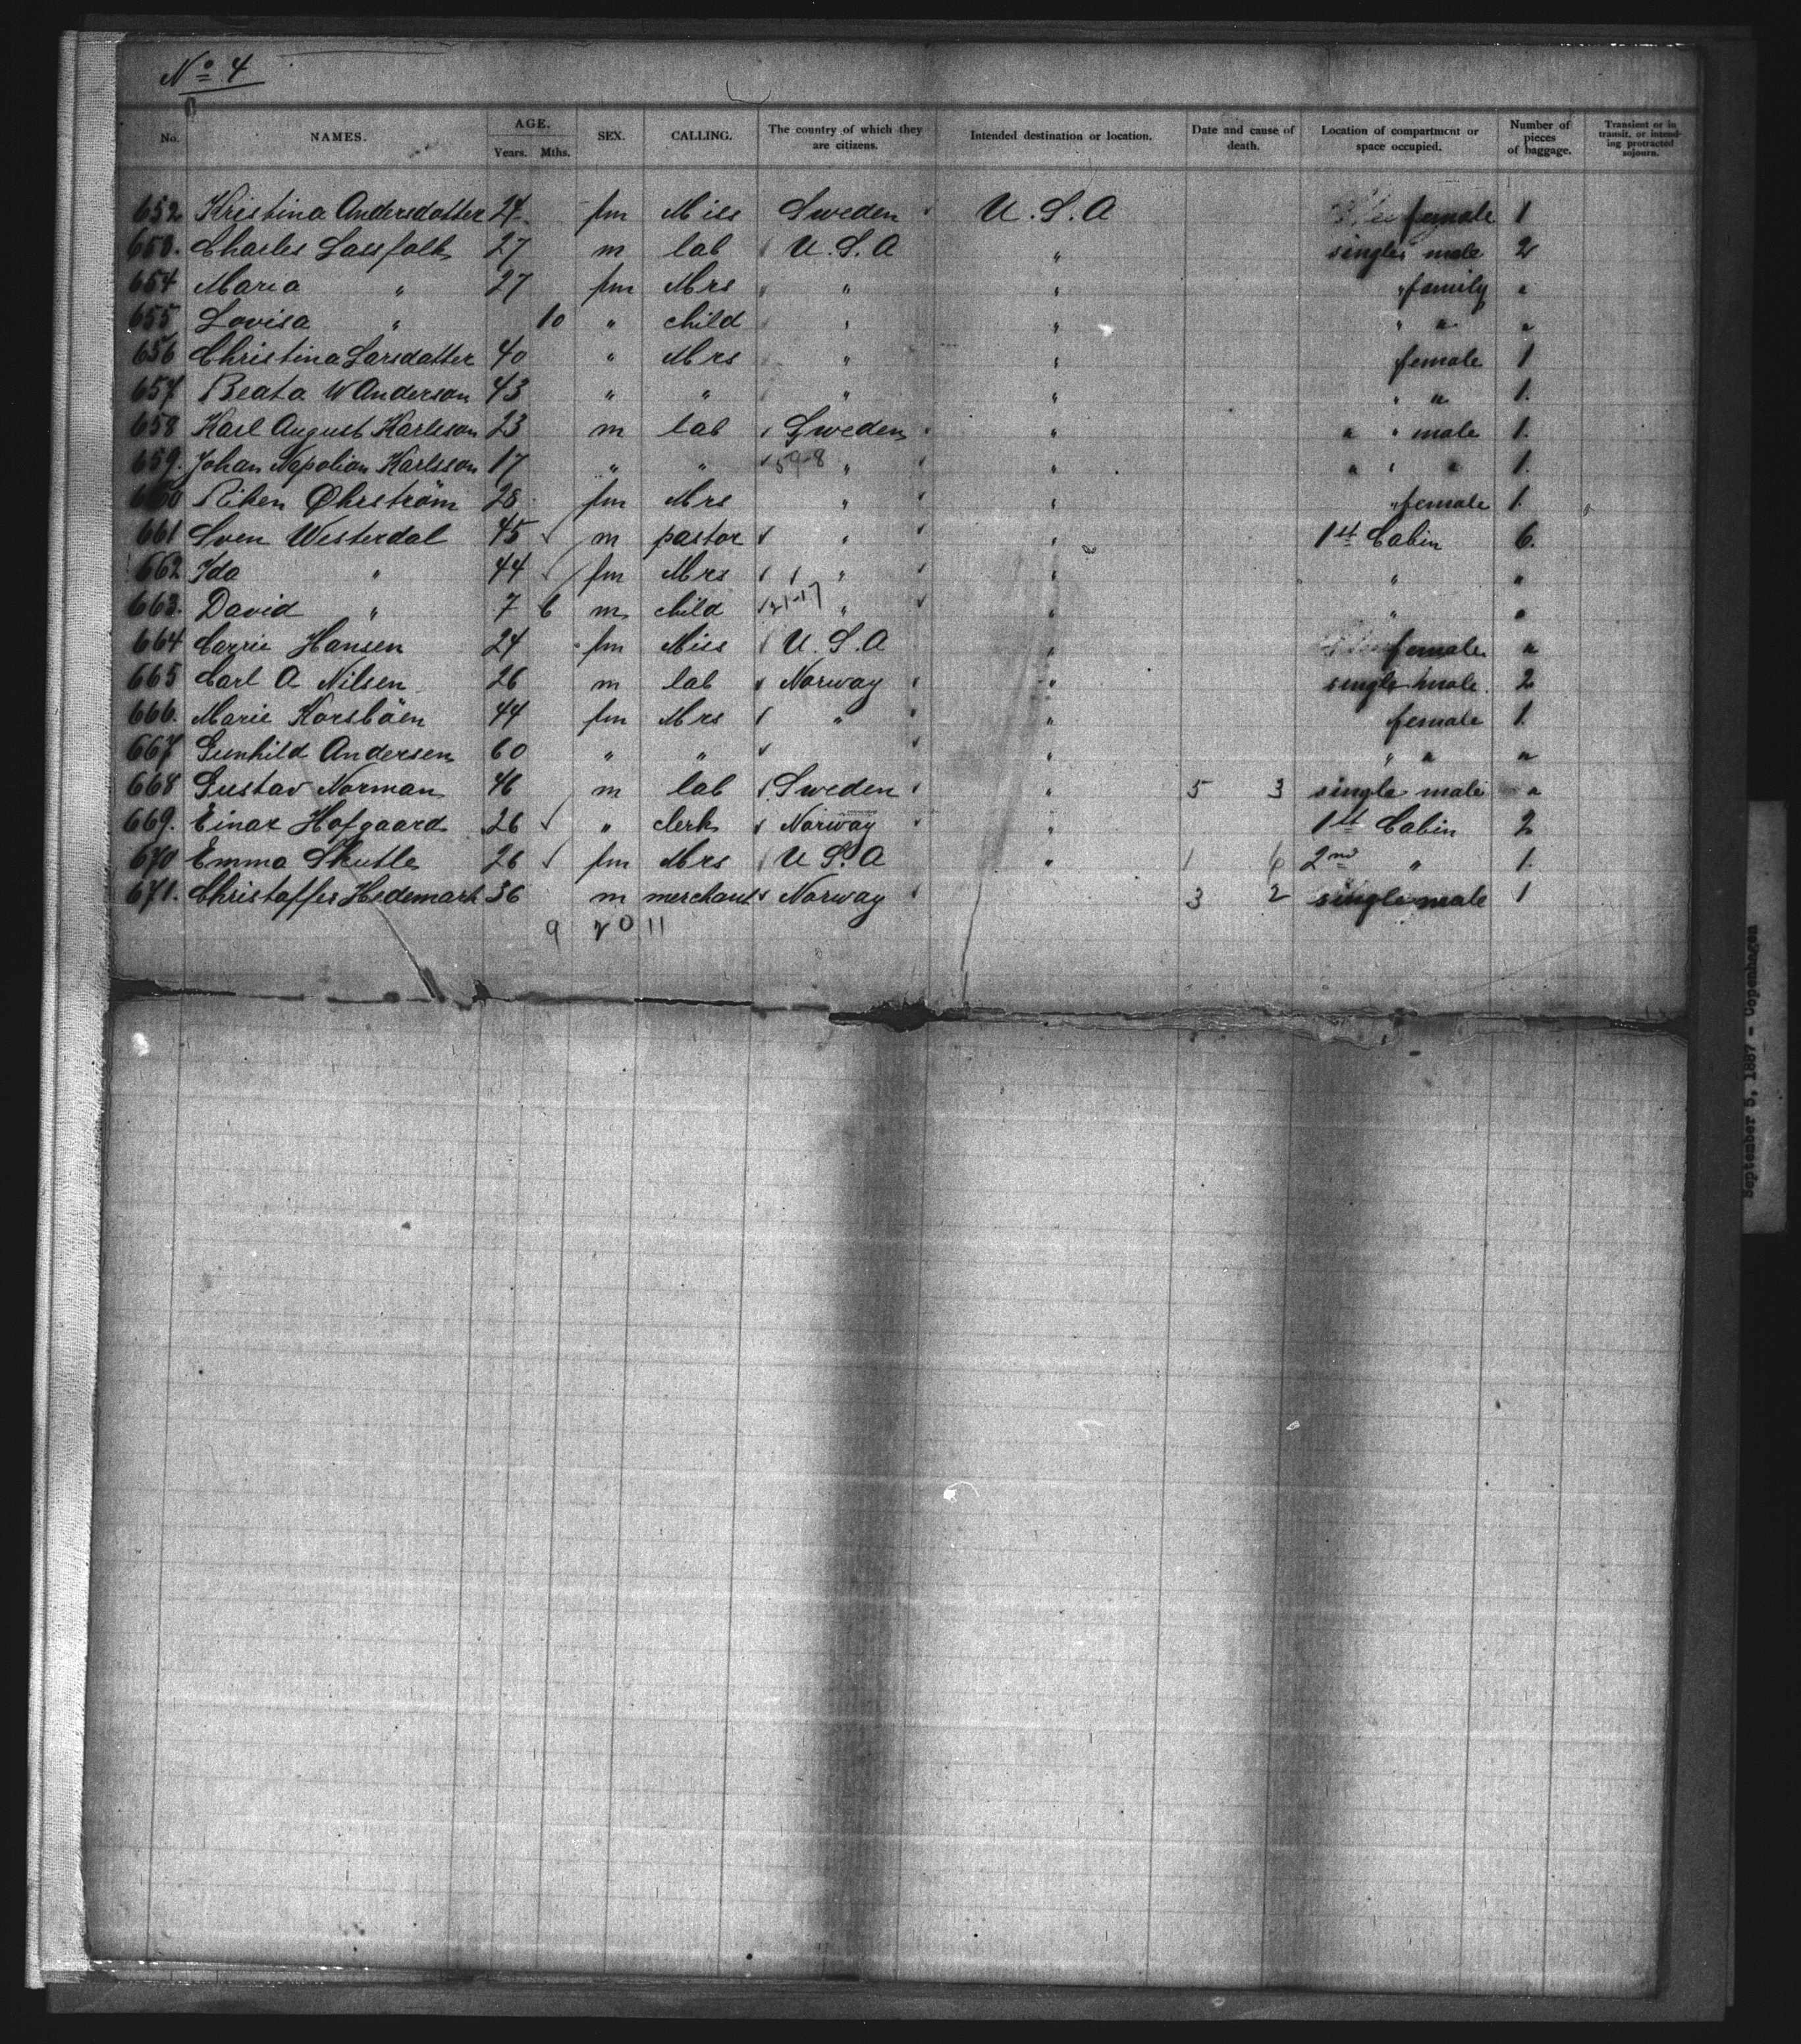 No 4
No. NAMES. AGE. Years. Mths. SEX. CALLING. The country of which they are citizens. Intended destination or location. Date and cause of death. Location of compartment or space occupied. Number of pieces of baggage. Transient or in transit, or intending protracted sojourn.
652 Kristina Andersdotter 24 fm Miss Sweden U.S.A female 1
653. Charles Lassfolk 27 m lab U.S.A " single male 2
654 Maria " 27 fm Mrs " " " family "
655 Lovisa " 10 " child " " " " "
656 Christina Larsdatter 40 " Mrs " " female 1
657 Beata W Anderson 43 " " " " " " 1.
658 Karl August Karlsson 23 m lab Sweden " " " male 1.
659. Johan Napolion Karlsson 17 " " 59-8 " " " " " 1.
660 Öhrström 28 fm Mrs " " " female 1. "
661 Sven Westerdal 45 m pastor " " 1st Cabin 6.
662 Ida " 44 fm Mrs " " " "
663. David " 7 6 m child 21-17 " " " "
664 Carrie Hansen 24 fm Miss U.S.A " female "
665 Carl A Nilsen 26 m lab Norway " single male. 2
666. Marie Korsböen 44 fm Mrs " " female 1.
667 Gunhild Andersen 60 " " " " " "
668 Gustav Norman 46 m lab Sweden " 5 3 single male "
669. Einar Hofgaard 26 " clerk Norway " 1st Cabin 2
670 Emma Skutle 26 fm Mrs U.S.A " 1 6 2nd " 1.
671. Christoffer Hedemark 36 m merchant Norway 3 2 single male 1
9 20 11
September 5, 1887 - Copenhagen